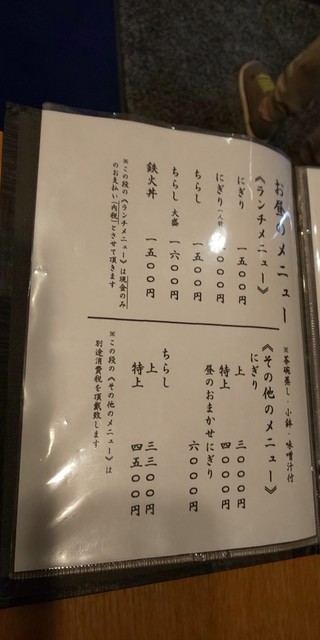 お昼のメニュー
《ランチメニュー》
にぎり 一五〇〇円
にぎり 〇〇〇円
ちらし 一五〇〇円
ちらし 大盛 一六〇〇円
鉄火丼 一五〇〇円
※この段の《ランチメニュー》は現金のみ
のお支払い「内税」とさせて頂きます
※茶碗蒸し・小鉢・味噌汁付
《その他のメニュー》
にぎり
上 三〇〇〇円
特上 四〇〇〇円
昼のおまかせにぎり
六〇〇〇円
ちらし
上 三三〇〇円
特上 四五〇〇円
※この段の《その他のメニュー》は
別途消費税を頂戴致します